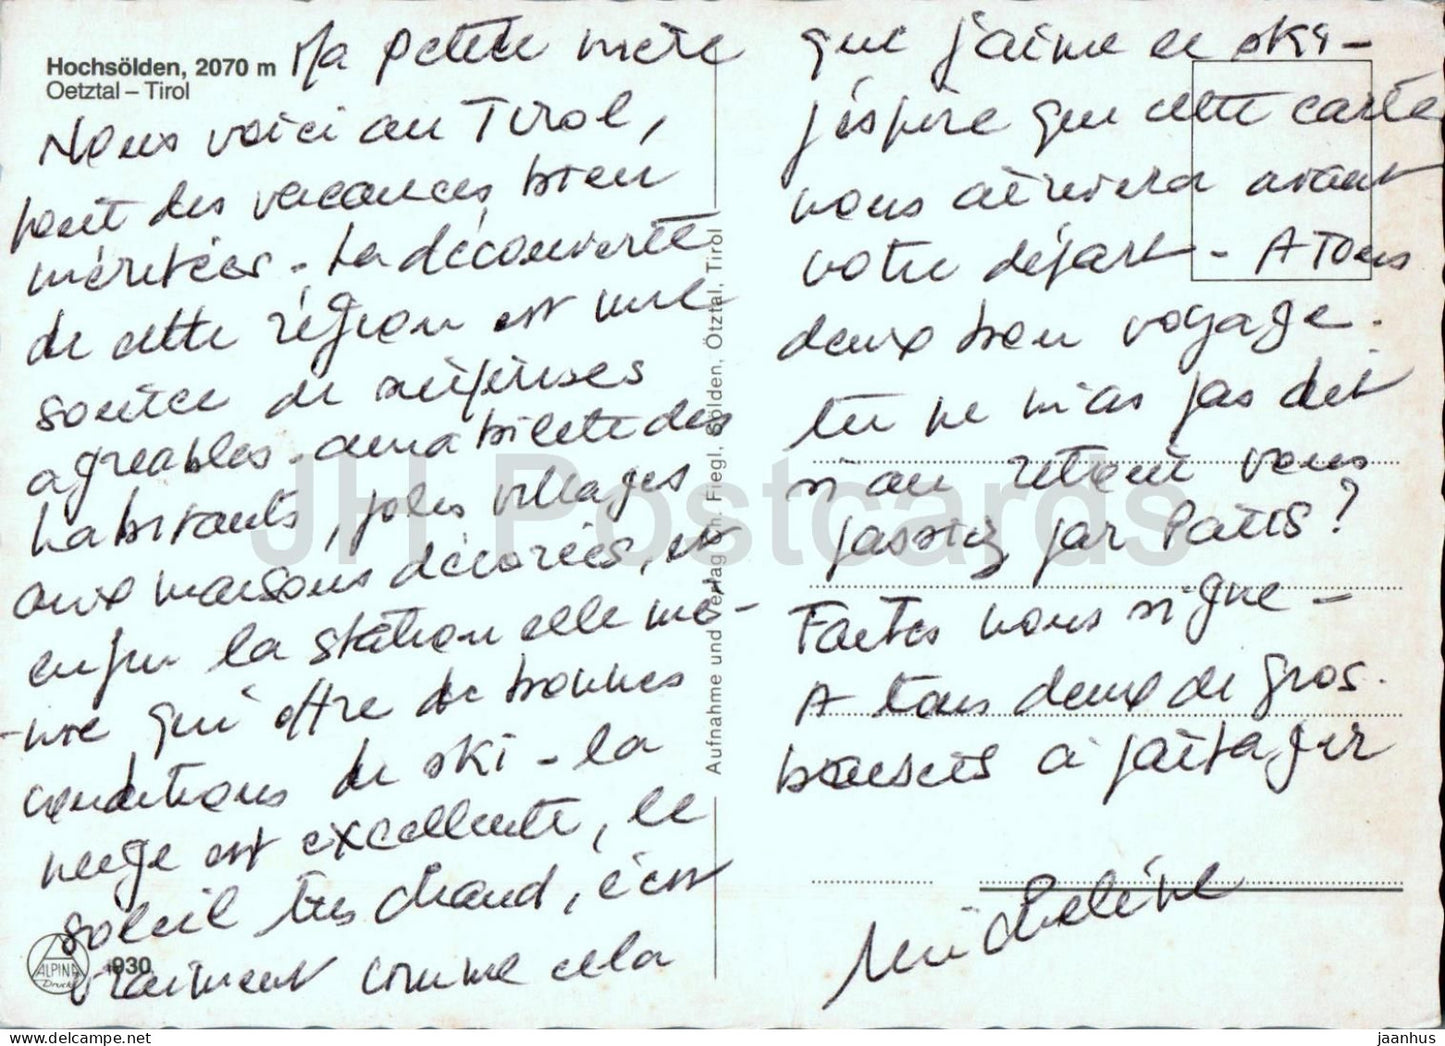 Hochsölden, 2070 m
Oetztal – Tirol
Ma petite mère
Nous voici au Tirol,
pour des vacances bien
méritées - La découverte
de cette région est une
source de surprises
agréables - amabilité des
habitants, jolis villages
aux maisons décorées, et
enfin la station elle mê-
-me qui offre de bonnes
conditions de ski - la
neige est excellente, le
soleil très chaud, c'est
vraiment comme cela
que j'aime le ski -
j'espère que cette carte
vous arrivera avant
votre départ - A tous
deux bon voyage.
tu ne m'as pas dit
si au retour vous
passiez par Paris ?
Faites nous signe -
A tous deux de gros
baisers à partager
Micheline
Aufnahme und Verlag Ch. Fiegl, Sölden, Ötztal, Tirol
ALPINA
Druck
930
JH Postcards
jaanhus